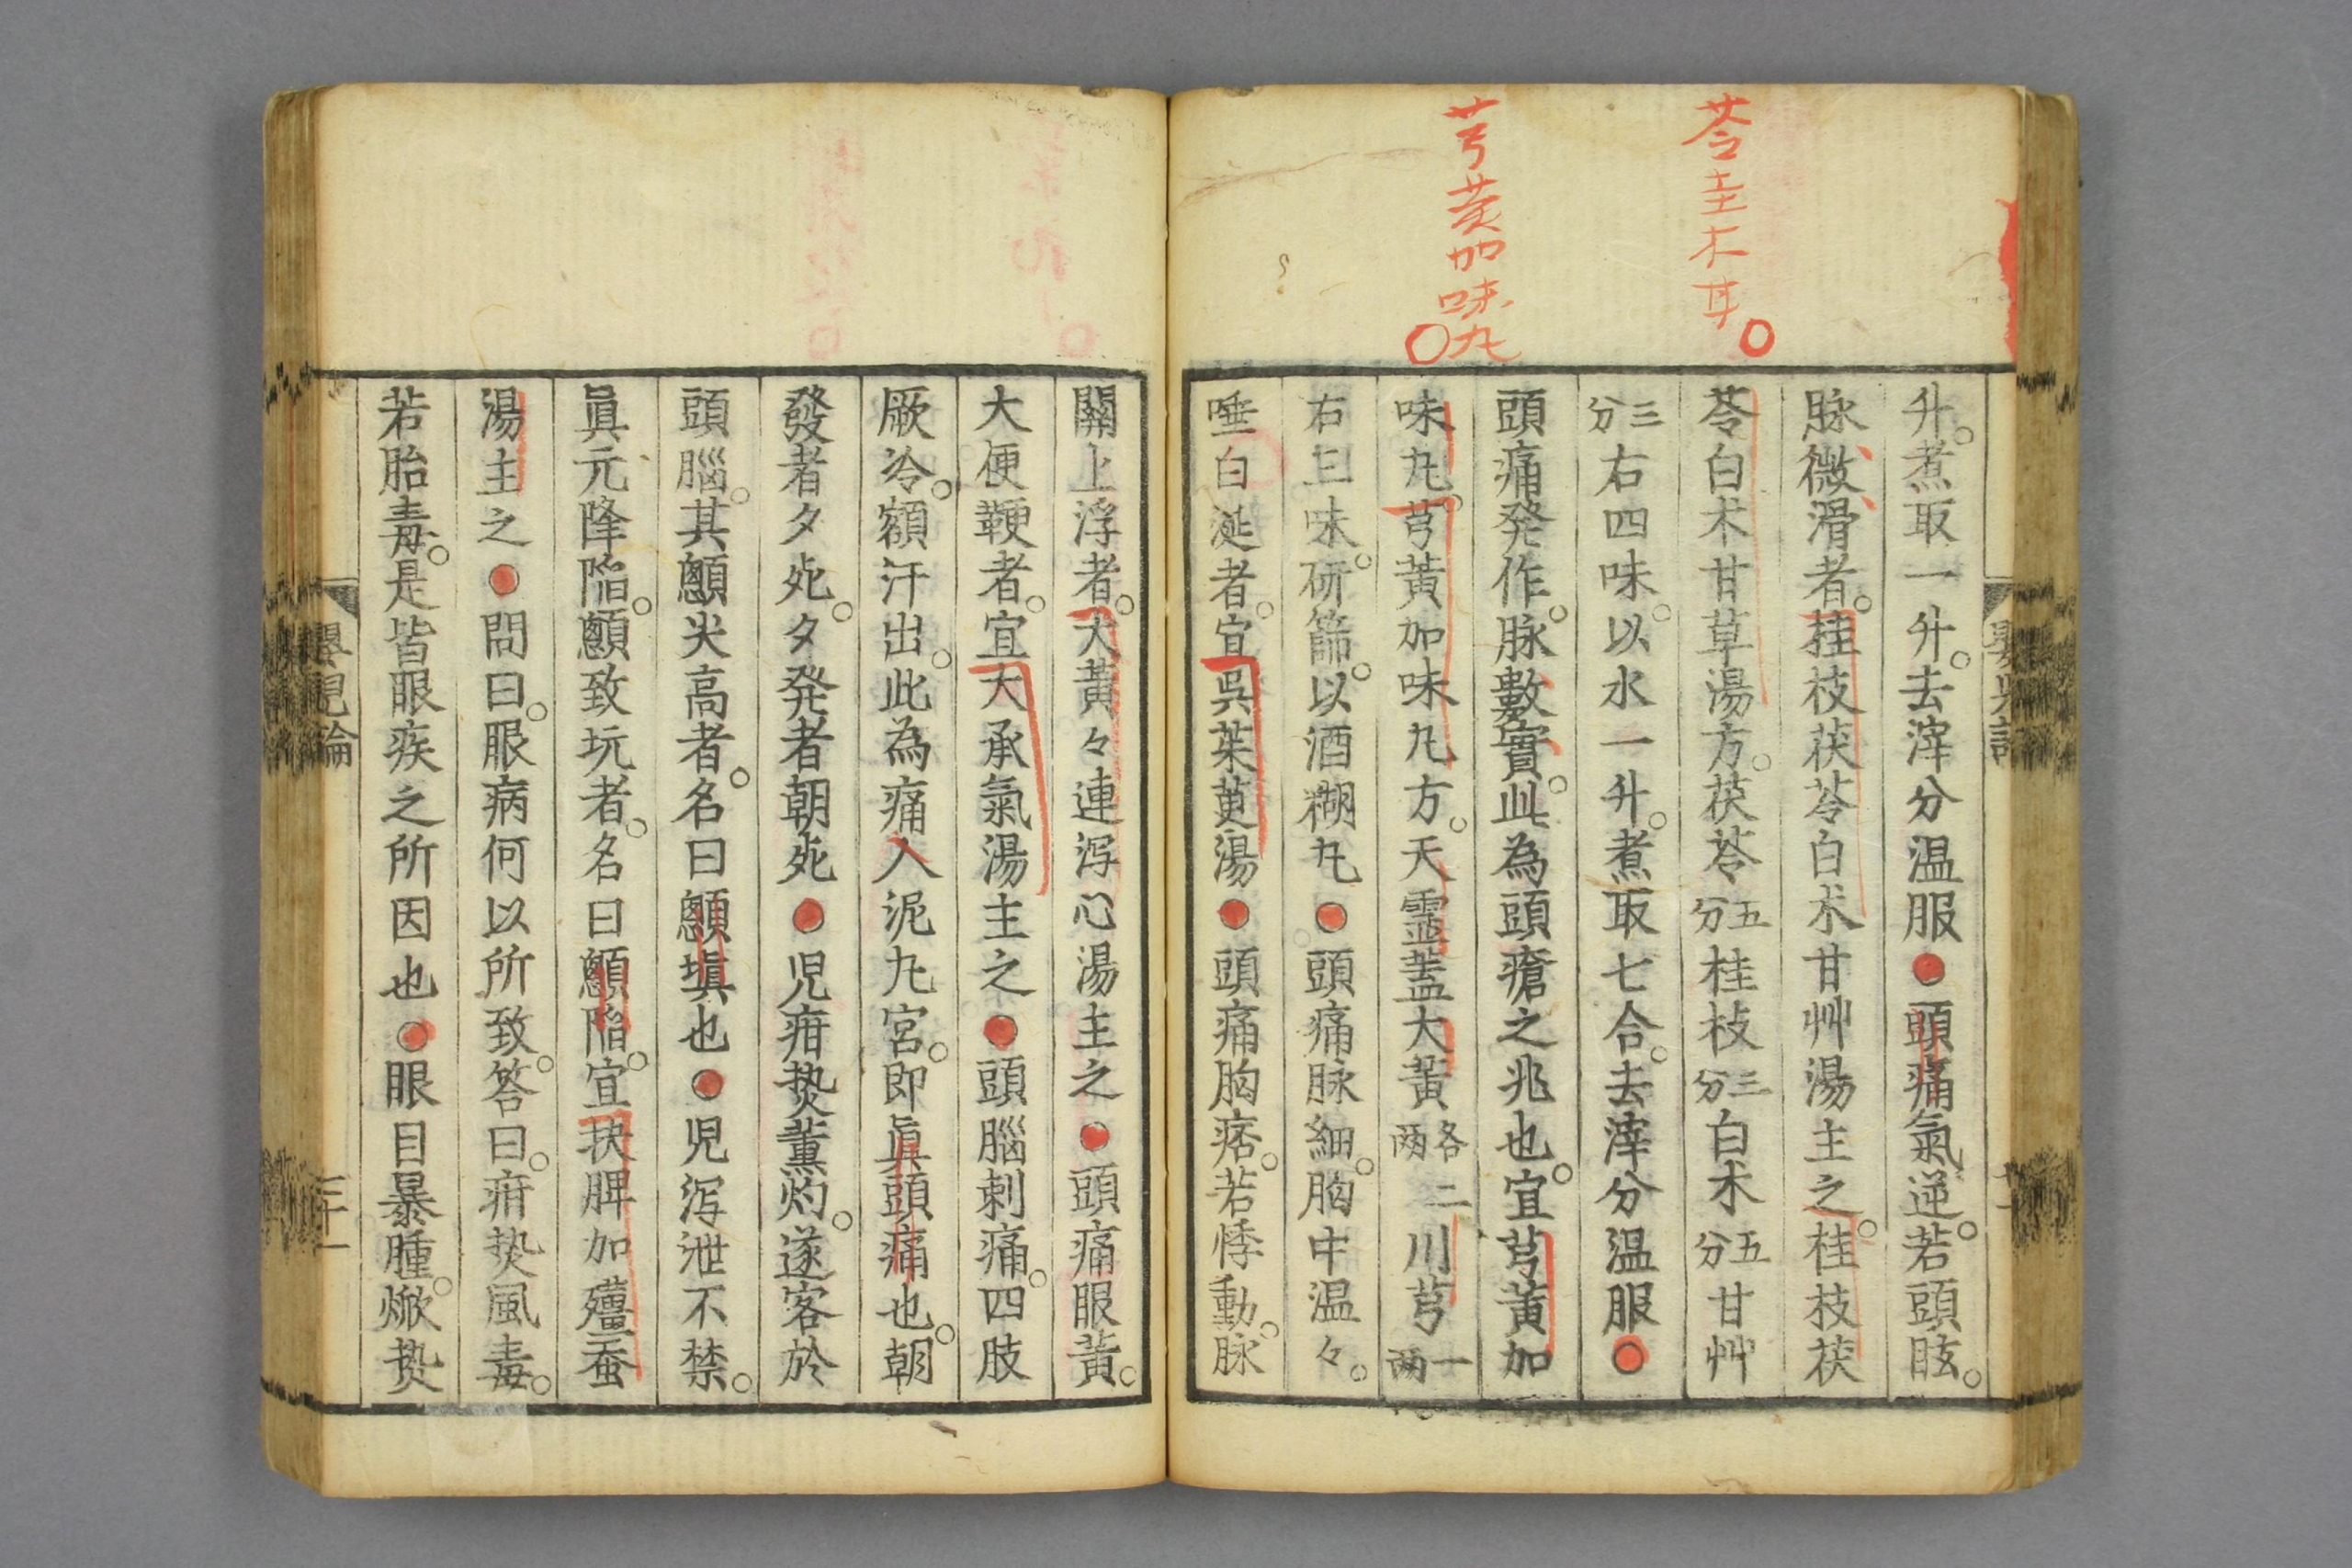 苓圭木甘
芎黄加味丸
升。煮取一升。去滓分温服●頭痛氣逆。若頭眩。
脉微滑者。桂枝茯苓白朮甘艸湯主之。桂枝茯
苓白朮甘草湯方。茯苓五分桂枝三分白朮五分甘艸
三分右四味。以水一升。煮取七合。去滓分温服○
頭痛発作。脉數實。此為頭瘡之兆也。宜芎黄加
味丸。芎黄加味丸方。天霊蓋大黄各二两川芎一两
右三味。研篩。以酒糊丸●頭痛脉細。胸中温々。
唾白涎者。宜呉茱萸湯●頭痛胸痞。若悸動。脉
關上浮者。大黄々連泻心湯主之●頭痛眼黄。
大便鞕者。宜大承氣湯主之●頭腦刺痛。四肢
厥冷。額汗出。此為痛入泥丸宮。即眞頭痛也。朝
發者夕死。夕発者朝死●児疳热薫灼。遂客於
頭腦。其顖尖高者。名曰顖塡也●児泻泄不禁。
眞元降陷。顖致坑者。名曰顖陷。宜抉脾加殭蚕
湯主之●問曰。眼病何以所致。答曰。疳热風毒。
若胎毒。是皆眼疾之所因也○眼目暴腫。焮热